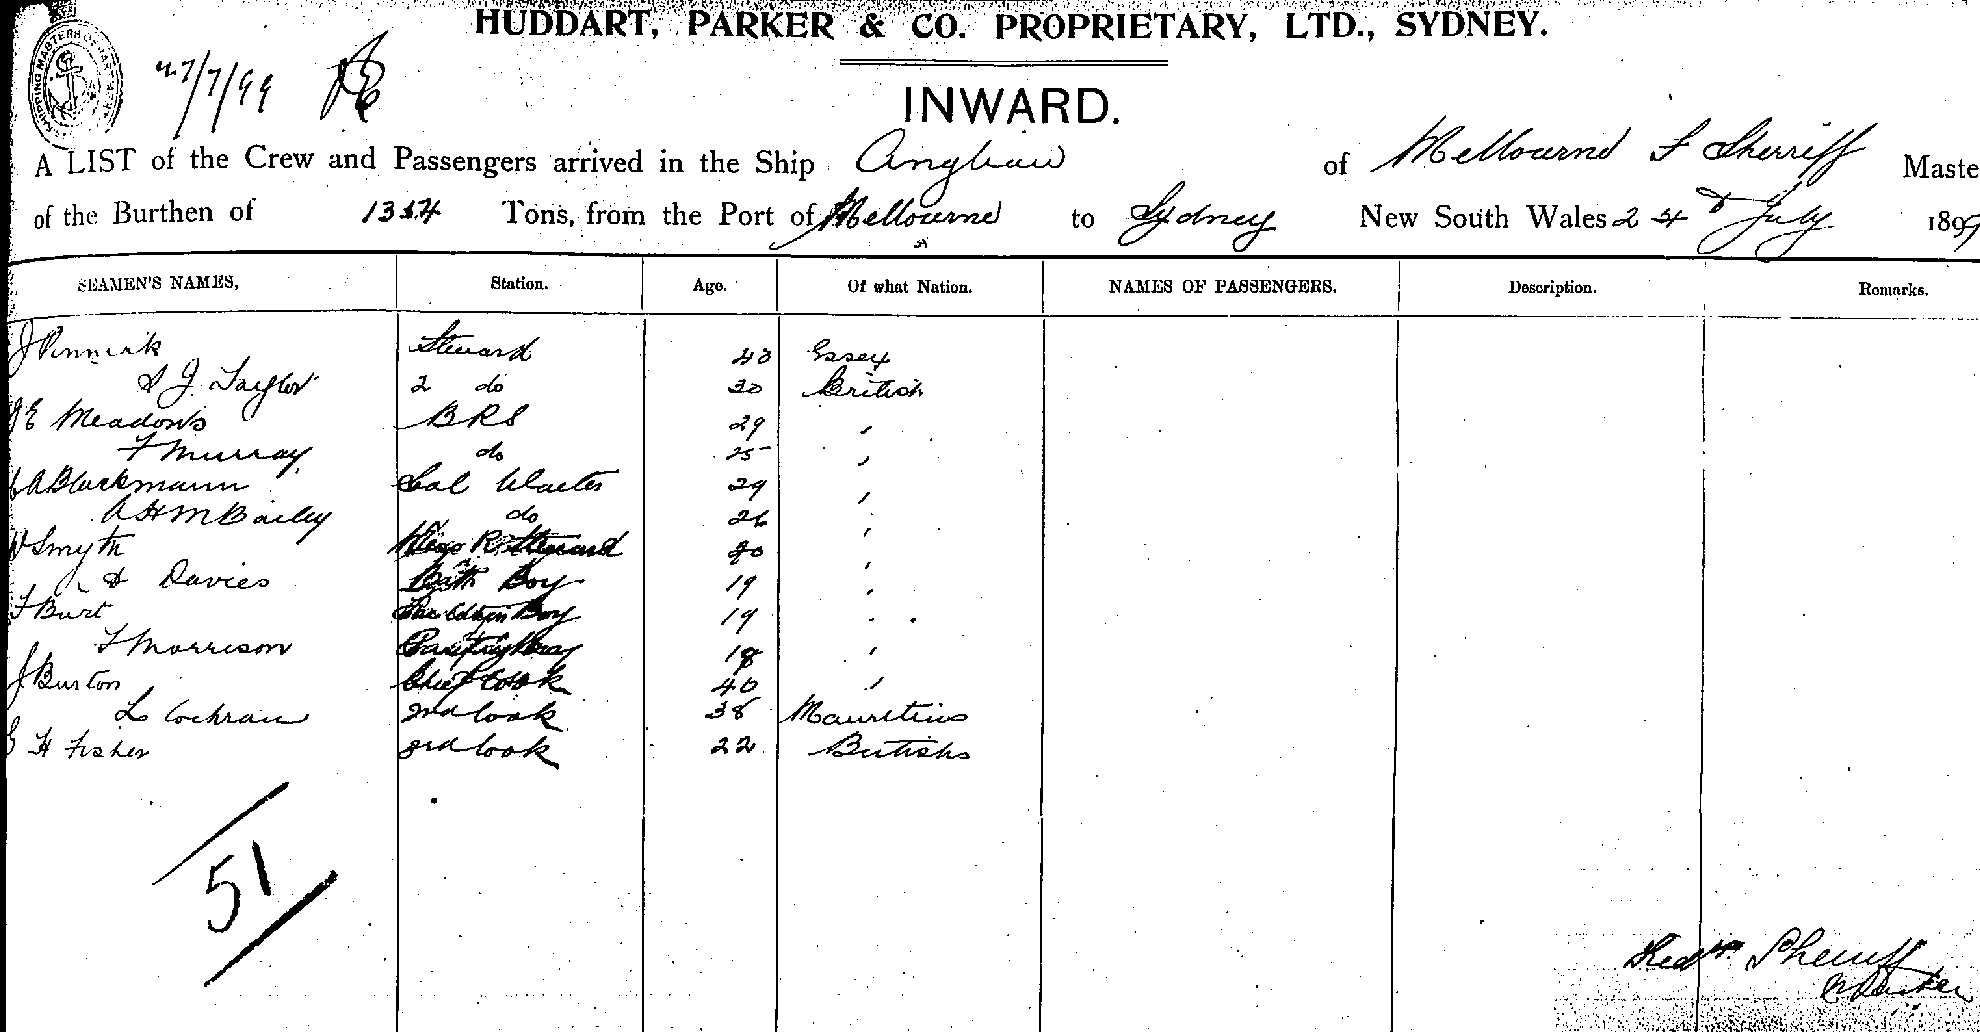 HUDDART, PARKER & CO. PROPRIETARY, LTD., SYDNEY.
27/7/99
INWARD.
A LIST of the Crew and Passengers arrived in the Ship Anglian of Melbourne F Sherriff Maste
of the Burthen of 1354 Tons, from the Port of Melbourne to Sydney New South Wales 24th July 1899
SEAMEN'S NAMES, Station. Age. Of what Nation. NAMES OF PASSENGERS. Description. Remarks.
J Steward 43 Essex
J. Taylor 2 do 30 British
E Meadows BRS 29 "
F Murray do 25 "
A Blackmann Sal Waiter 29 "
A H M Bailey do 26 "
W Smyth R Steward 20 "
Davies Boy 19 "
F Burt Boy 19 "
F Morrison 18 "
J Burton Chief Cook 40 "
L Cochran 2nd Cook 38 Mauritius
H Fisher 3rd Cook 22 British
51
Sherriff